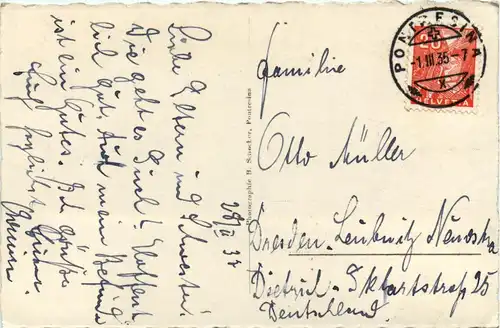 Liebe Eltern und Schwester!
Wie geht es Euch? Hoffent-
lich gut. Auch mein Befinden
ist ein Gutes. Es grüßt
Euch herzlichst Euer
28/II 35
Photographie H. Pontresina
PONTRESINA
-1.III.35-7
X
20
HELVETIA
Familie
Otto Müller
Dresden-Leubnitz Neuostra
Dietrich-Ekkartstraße 25
Deutschland.